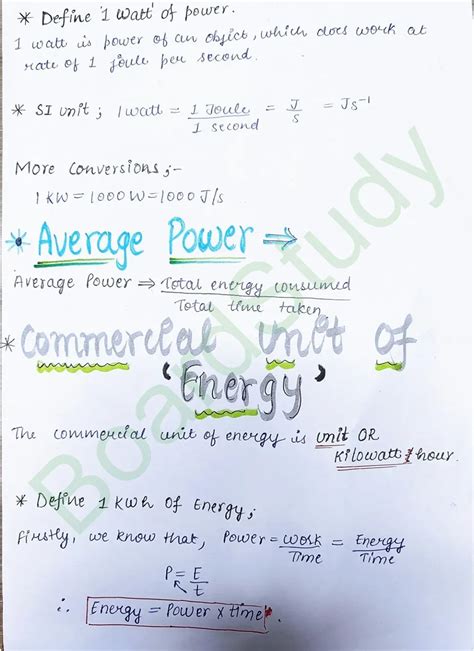 * Define '1 Watt' of power.
1 watt is power of an object, which does work at
rate of 1 joule per second.
* SI unit ; 1watt = 1 Joule / 1 second = J / s = Js⁻¹
More Conversions ;-
1 KW = 1000 W = 1000 J/s
* Average Power ⇒
Average Power ⇒ Total energy consumed / Total time taken
* Commercial unit of
'Energy'
The commercial unit of energy is unit OR
Kilowatt hour.
* Define 1 KWh Of Energy;
Firstly, we know that, Power = work / Time = Energy / Time
P = E / t
∴ Energy = Power x time.
BoardStudy